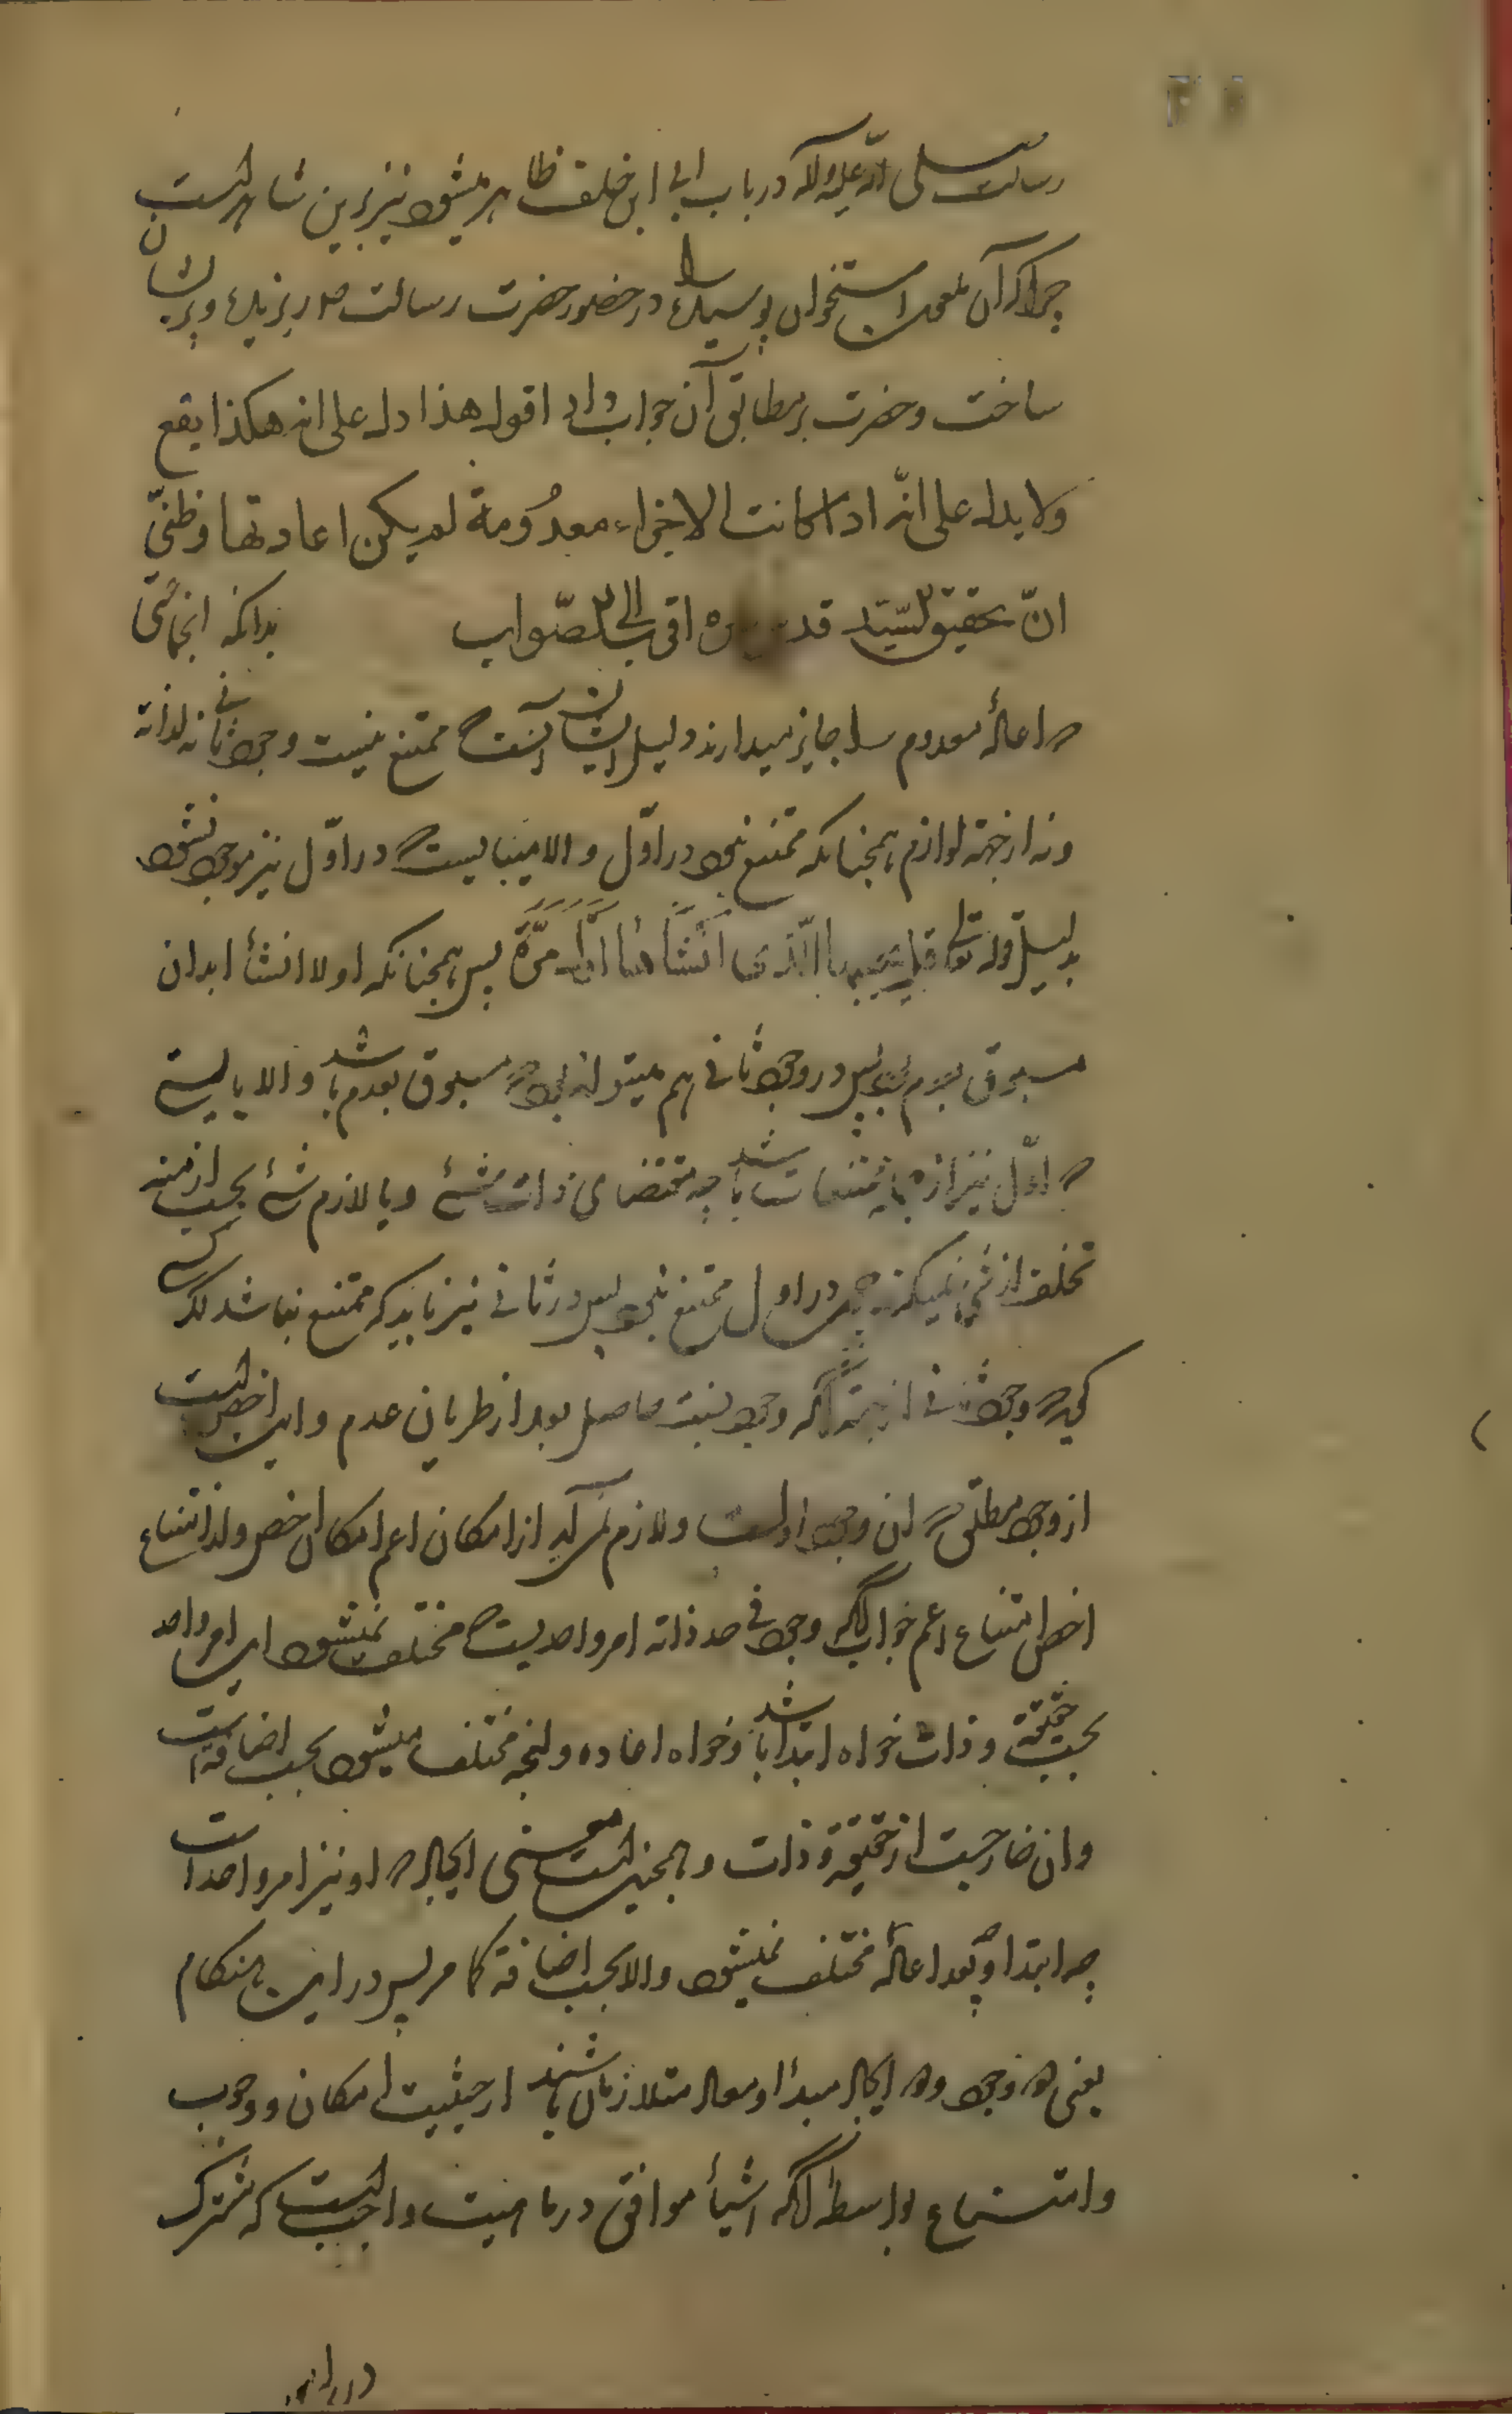 رسالت صلی الله علیه و اله در باب ابی ابن خلف ظاهر میشود نیز برین شاهد است
چرا که آن ملعون استخوان پوسیده را در حضور حضرت رسالت صلعم ریزیده و پریشان
ساخت و حضرت بر مطابق آن جواب داد اقول هذا دل علی انه هکذا یقع
ولا یدل علی انّه اذا کانت الاجزاء معدُومة لم یکن اعادتها و ظنّی
انّ تحقیق السّید قدس سره اقرب الی الصّواب بدانکه انجماعتی
که اعاده معدوم را جایز میدارند دلیل ایشان آنست که ممتنع نیست وجود ثانی نه لذاته
و نه از جهة لوازم همچنانکه ممتنع نبود در اوّل و الا میبایست که در اوّل نیز موجود نشود
بدلیل قوله تعالی قل یحییها الّذی اَنْشَأَها اَوَّلَ مَرَّةٍ پس همچنانکه اولا انشأ ابدان
مسبوق بعدم بود پس در وجود ثانی هم میتواند بود که مسبوق بعدم باشد و الا بایستی
که اوّل نیز از ممتنعات باشد چه مقتضای ذات شیٔ و یا لازم شیٔ بحسب ازمنه
تخلف از شیٔ نمیکند چون در اول ممتنع نبود پس در ثانی نیز باید که ممتنع نباشد اگر کسی
گوید که وجود ثانی از جهة آنکه وجودیست حاصل بعد از طریان عدم و این اخص است
از وجود مطلق که ان وجود اولست و لازم نمی آید از امکان اعم امکان اخص و لا از امتناع
اخص امتناع اعم جواب آنکه وجود فی حد ذاته امر واحدیست که مختلف نمیشود این امر واحد
بحسب حقیقة و ذات خواه ابتدا باشد و خواه اعاده و لیکن مختلف میشود بحسب اضافه است
و ان خارجست از حقیقة و ذات و همچنین است معنی ایجاد که او نیز امر واحد است
چه ابتدا و چه اعاده مختلف نمیشود و الا بحسب اضافة کما مر پس در این هنکام
یعنی دو وجود و دو ایجاد مبدا و معاد متلازمان باشند از حیثیت امکان و وجوب
و امتناع بواسطه آنکه اشیأ موافق در ماهیت واجبست که مشترک